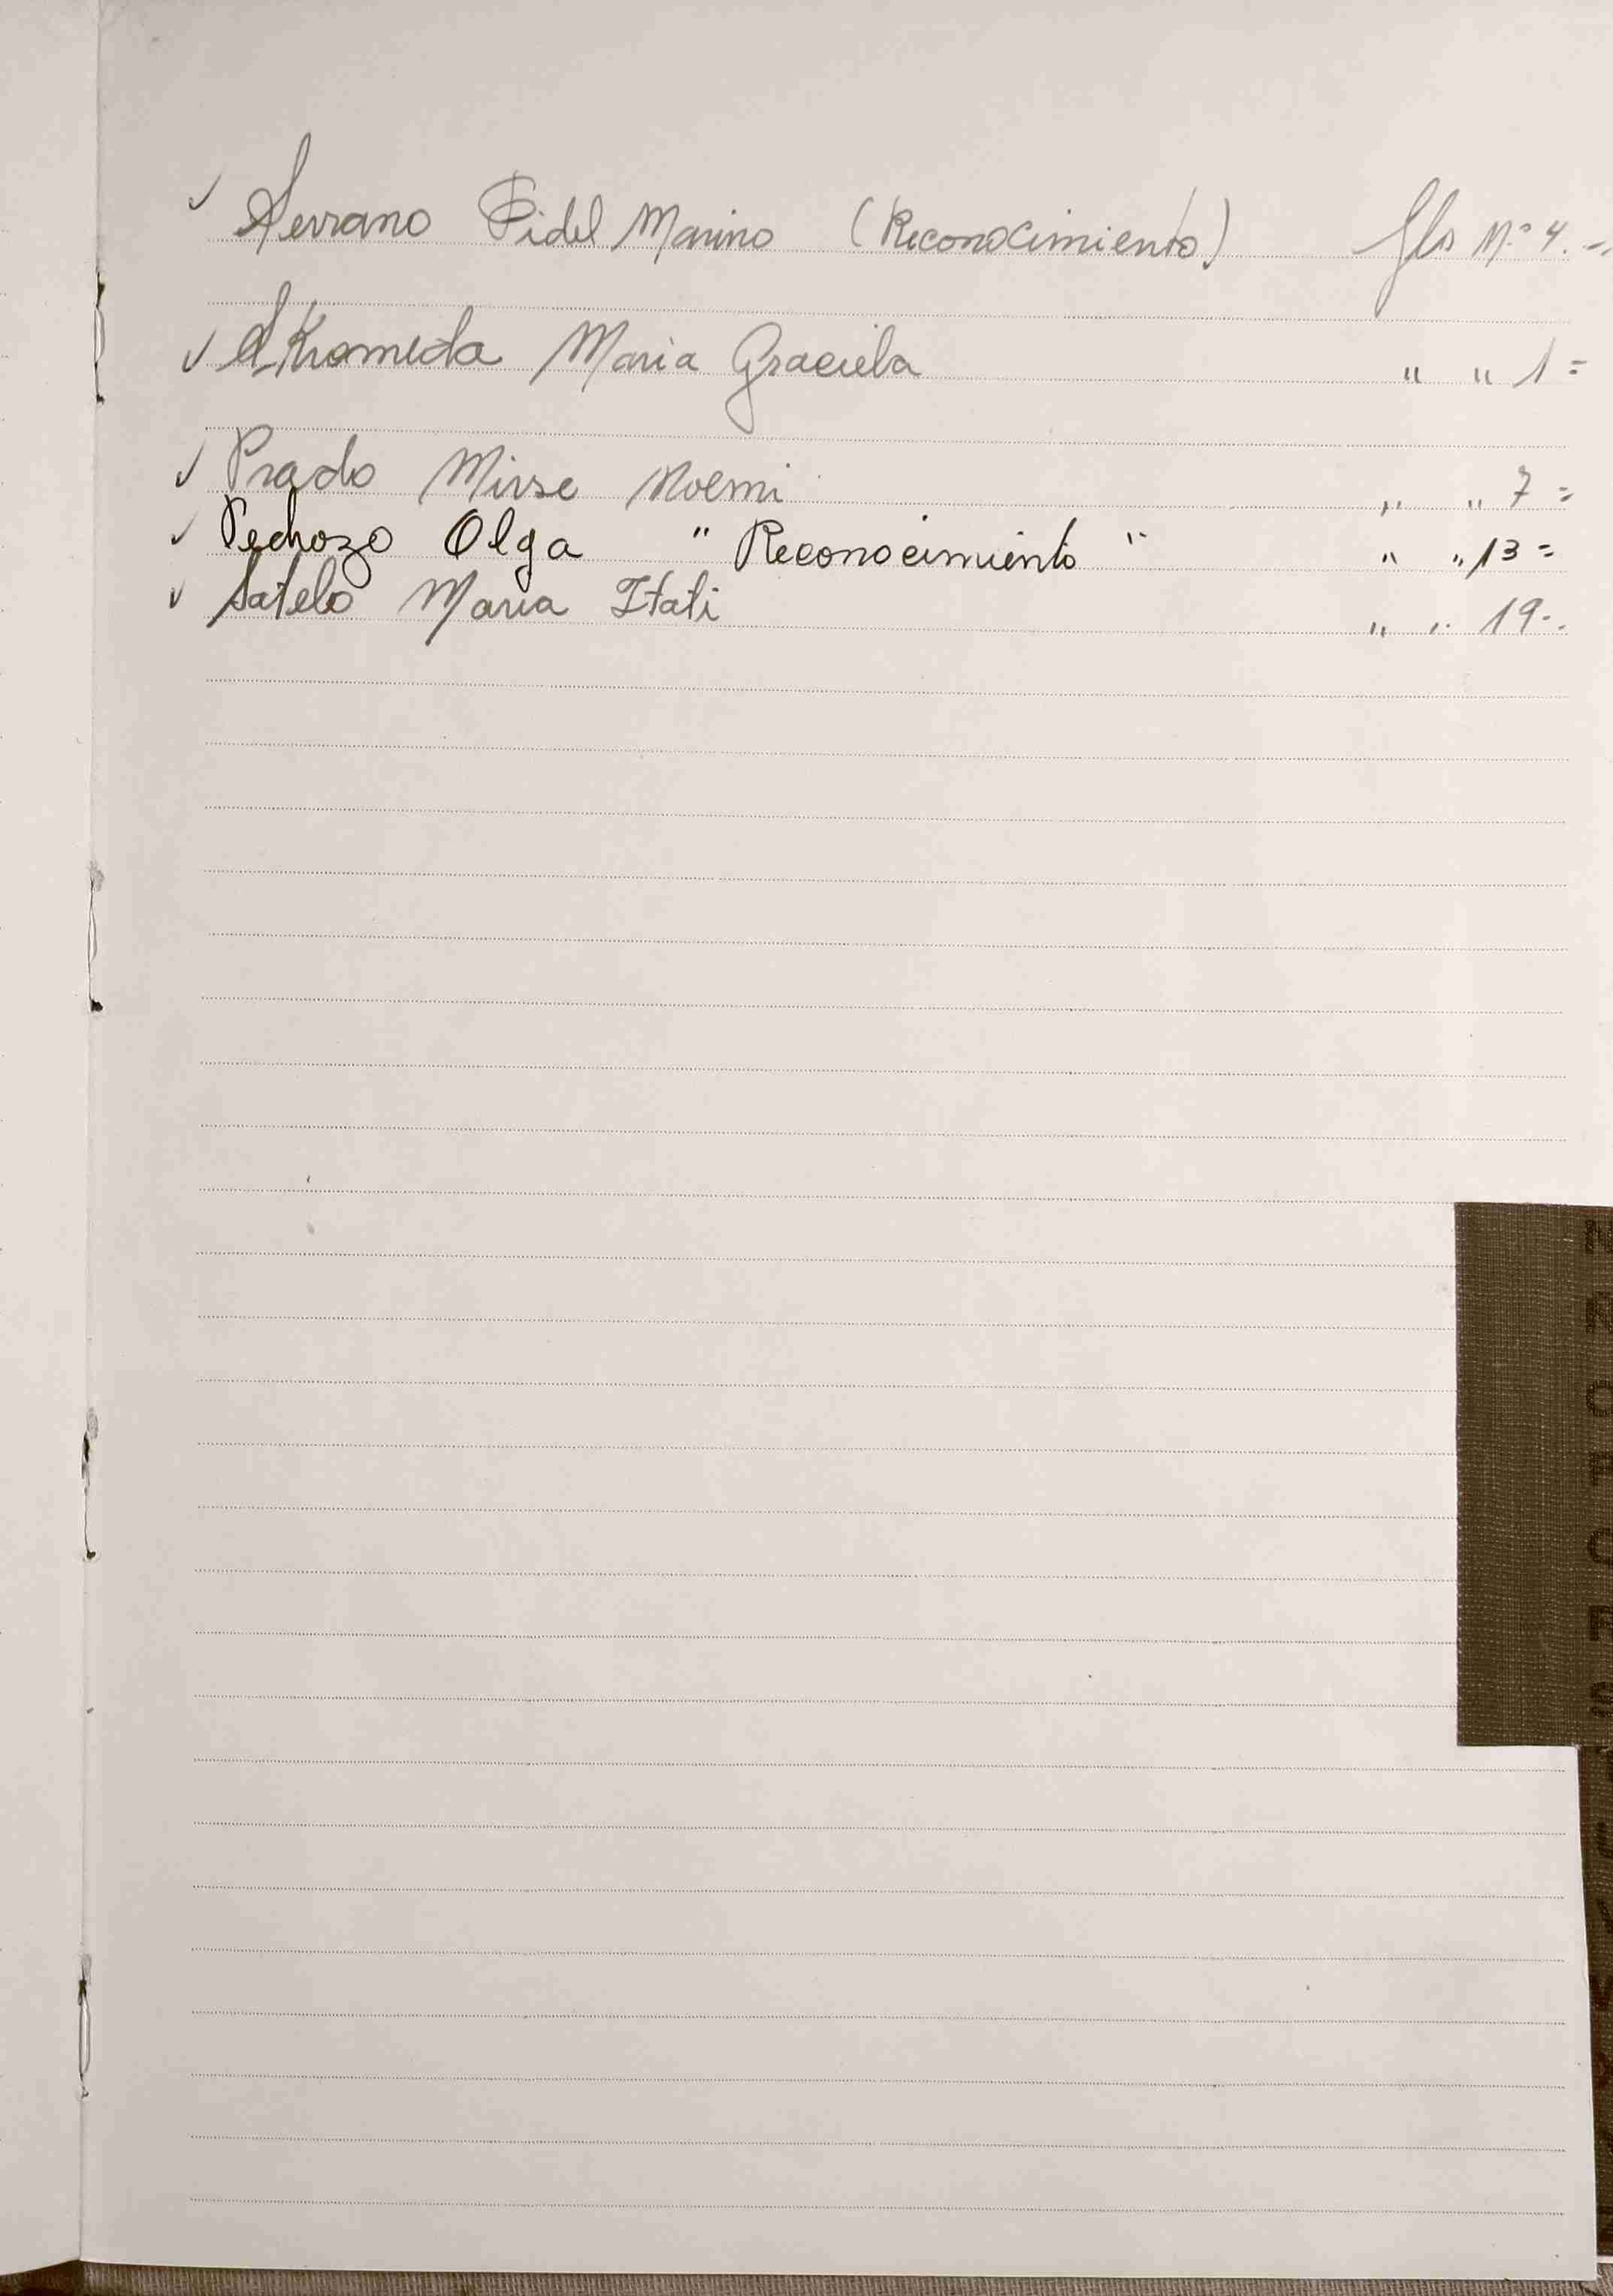 ✓ Serrano Fidel Marino (Reconocimiento) fls N.º 4.-
✓ Maria Graciela " " 1=
✓ Prado Mirse Noemi " " 7=
✓ Pedrozo Olga " Reconocimiento " " " 13=
✓ Satelo Maria Itati " " 19-.